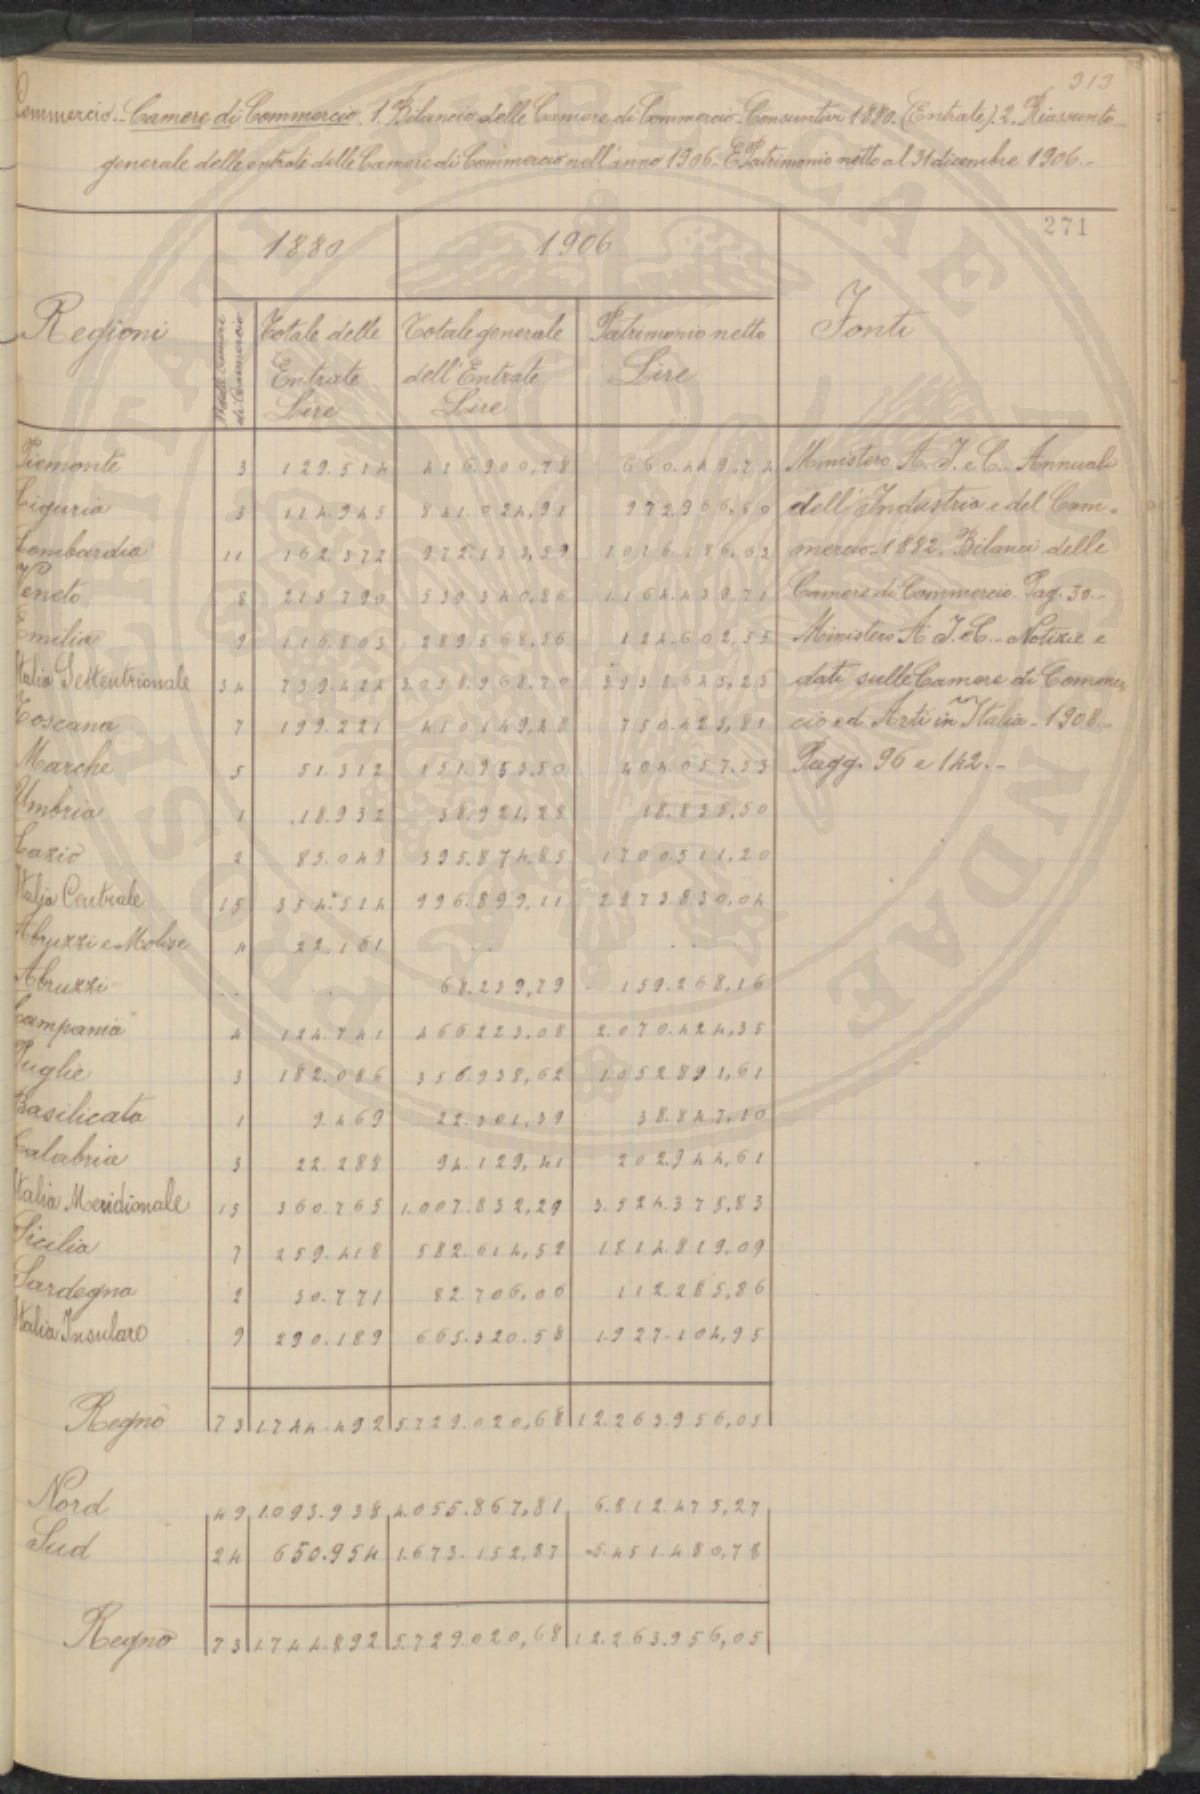 313
Commercio. - Camere di Commercio. 1. Bilancio delle Camere di Commercio. Consuntivi 1880. (Entrate). 2. Riassunto
generale delle entrate delle Camere di Commercio nell'anno 1906. E Patrimonio netto al 31 dicembre 1906. -
271
Regioni 1880 1906 Fonti
N. delle Camere di Commercio
Totale delle Entrate Lire
Totale generale dell'Entrate Lire
Patrimonio netto Lire
Piemonte 3 129.514 416.900,78 660.449,74
Liguria 3 114.945 841.024,91 972.966,80
Lombardia 11 162.372 972.133,59 1016.186,63
Veneto 8 215.790 539.340,86 1164.439,71
Emilia 9 116.803 289.568,56 124.602,35
Italia Settentrionale 34 739.424 3.058.968.70 3938645,23
Toscana 7 199.221 410149,48 750.423,81
Marche 5 51.312 151.953.50 404057.53
Umbria 1 18.932 38.921,28 18.838,50
Lazio 2 85.049 395.874.85 1700511,20
Italia Centrale 15 354.514 996.899,11 2873.830,04
Abruzzi e Molise 4 22.181 . . . .
Abruzzi . . . . 68.239,79 159.268,16
Campania 4 124.741 466.223,08 2.070.424,35
Puglie 3 182.086 356.938,62 1.052.891,61
Basilicata 1 9.469 22.301,39 38.847,10
Calabria 3 22.288 94.129,41 202.944,61
Italia Meridionale 15 360.765 1.007.832,29 3.524.375,83
Sicilia 7 259.418 582.614,52 1814.819.09
Sardegna 2 30.771 82.706,06 112.285,86
Italia Insulare 9 290.189 665.320.58 1.927.104,95
Regno 73 1.744.492 5.729.020,68 12.263.956,05
Nord 49 1.093.938 4.055.867,81 6.812.475,27
Sud 24 650.954 1.673.152,87 5.451.480,78
Regno 73 1.744.892 5.729.020,68 12.263.956,05
Ministero A. I. e C. - Annuali
dell'Industria e del Com-
mercio - 1882. Bilanci delle
Camere di Commercio. Pag. 30. -
Ministero A. I. e C. - Notizie e
dati sulle Camere di Commer-
cio ed Arti in Italia - 1908. -
Pagg. 96 e 142. -